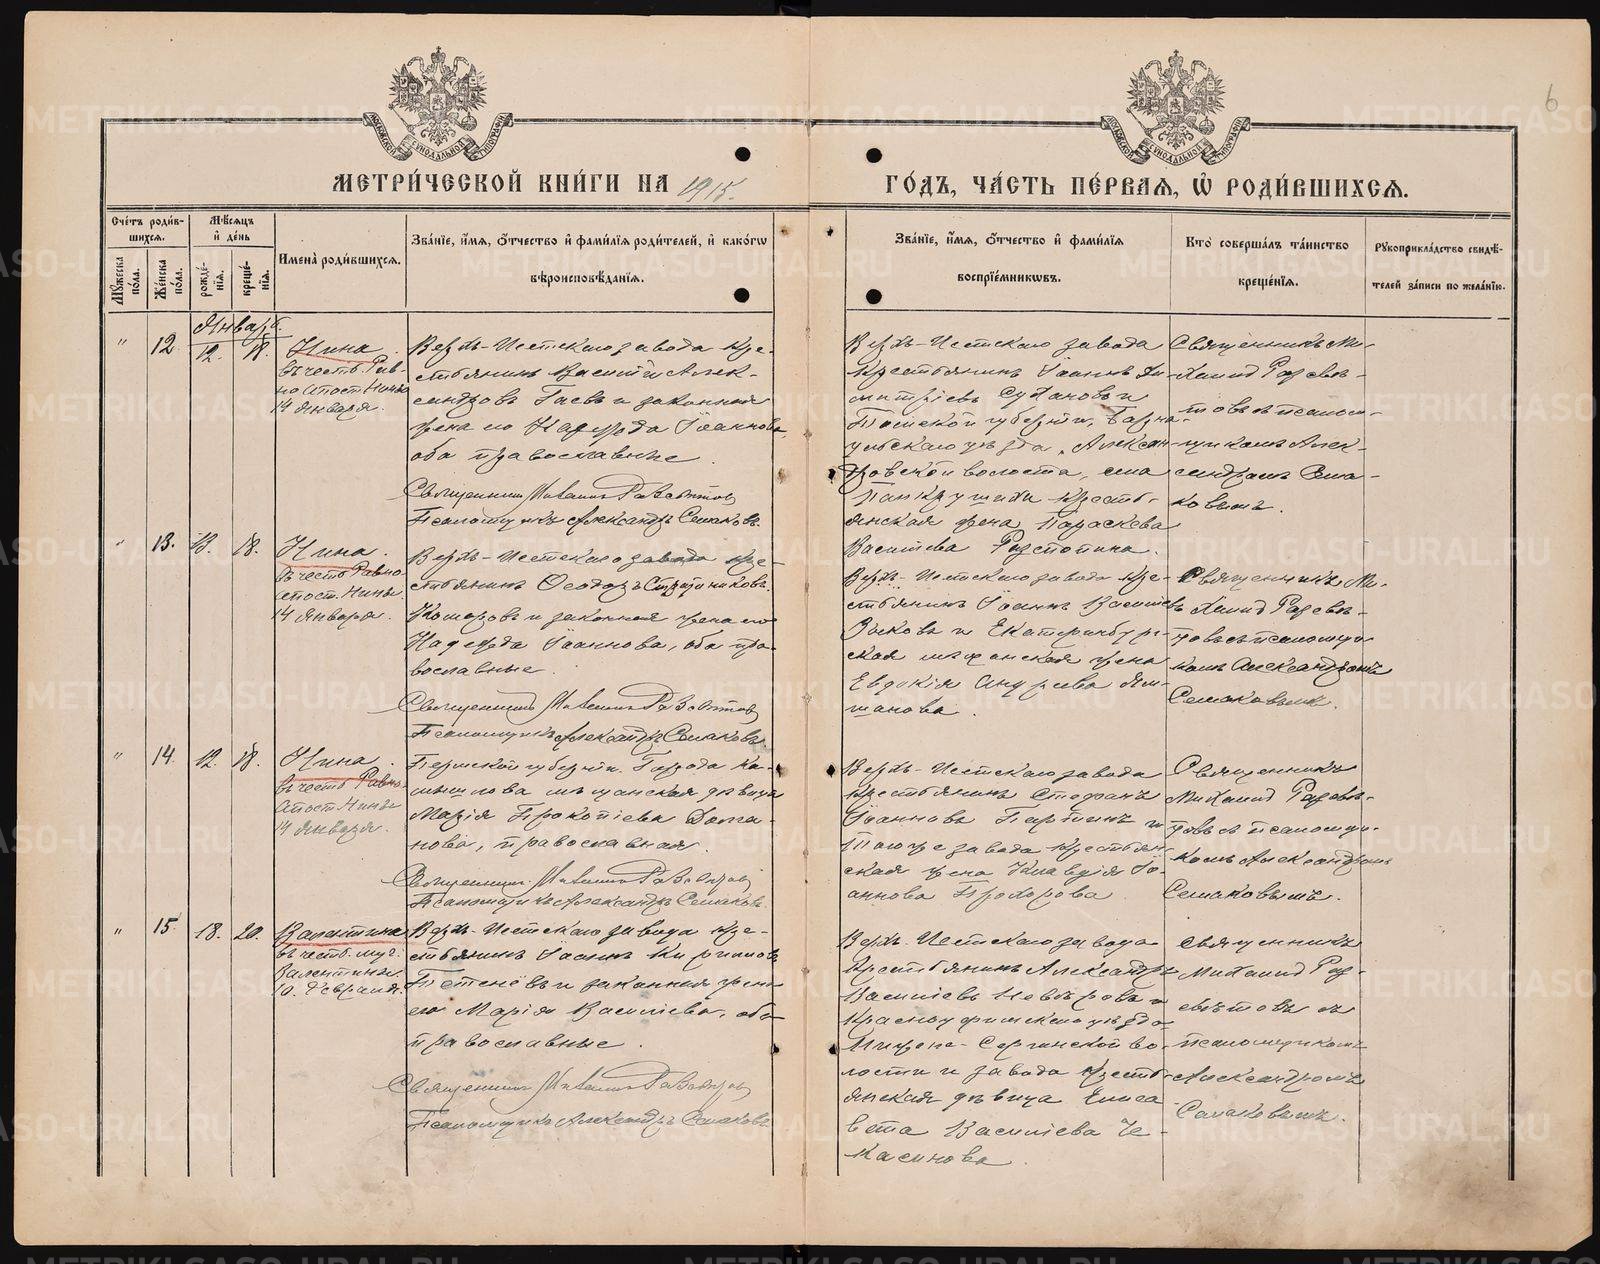 МОСКОВСКОЙ СѴНОДАЛЬНОЙ ТИПОГРАФІИ
МОСКОВСКОЙ СѴНОДАЛЬНОЙ ТИПОГРАФІИ
6
МЕТРИ́ЧЕСКОЙ КНИ́ГИ НА 1915.
ГО́ДЪ, ЧА́СТЬ ПЕ́РВАЯ, Ѡ҆ РОДИ́ВШИХСЯ.
Сче́тъ роди́в-
шихся.
Мѣ́сяцъ
и҆ де́нь
Мꙋ́жеска по́ла.
Же́нска по́ла.
рожде́-
нїя.
креще́-
нїя.
Имена̀ роди́вшихся.
Зва́нїе, и҆́мя, ѻ҆́тчество и҆ фами́лїя роди́телей, и҆ како́гѡ
вѣроисповѣ́данїя.
Зва́нїе, и҆́мя, ѻ҆́тчество и҆ фами́лїя
воспрїе́мникѡвъ.
Кто̀ соверша́лъ та́инство
креще́нїя.
Рꙋкоприкла́дство свидѣ́-
телей за́писи по жела́нїю.
Январь.
" 12 12. 18. Нина.
въ честь Рав-
но апост. Нины
14 Января.
Верхъ-Исетскаго завода кре-
стьянинъ Василій Алек-
сандровъ Гаевъ и законная
жена его Надежда Іоаннова,
оба православные.
Священникъ Михаилъ Разсвѣтовъ
Псаломщикъ Александръ Семаковъ.
Верхъ-Исетскаго завода
крестьянинъ Іоаннъ Ди-
митріевъ Сухановъ и
Томской губерніи, Барна-
ульскаго уѣзда, Алексан-
дровской волости, села
Панкрушихи крестъ-
янская жена Параскева
Васильева Растопина.
Священникъ Ми-
хаилъ Разсвѣ-
товъ съ псалом-
щикомъ Алек-
сандромъ Сема-
ковымъ.
" 13. 13. 18. Нина.
въ честь Равно-
апост. Нины
14 Января.
Верхъ-Исетскаго завода кре-
стьянинъ Ѳеодоръ
и законная жена его
Надежда Іоаннова, оба пра-
вославные.
Священникъ Михаилъ Разсвѣтовъ
Псаломщикъ Александръ Семаковъ.
Верхъ-Исетскаго завода кре-
стьянинъ Іоаннъ Васильевъ
Зыковъ и Екатеринбург-
ская мѣщанская жена
Евдокія Андреева Ям-
шанова.
Священникъ Ми-
хаилъ Разсвѣ-
товъ съ псаломщи-
комъ Александромъ
Семаковымъ.
" 14. 12. 18. Нина.
въ честь Равно-
апост. Нины
14 Января.
Пермской губерніи. Города Ка-
мышлова мѣщанская дѣвица
Марія Прокопіева Долга-
нова, православная.
Священникъ Михаилъ Разсвѣтовъ
Псаломщикъ Александръ Семаковъ.
Верхъ-Исетскаго завода
крестьянинъ Стефанъ
Іоанновъ Партинъ и
того же завода крестьян-
ская жена Клавдія Іо-
аннова Прохорова.
Священникъ
Михаилъ Разсвѣ-
товъ съ псаломщи-
комъ Александромъ
Семаковымъ.
" 15. 18. 20. Валентина
въ честь муч.
Валентины
10. Февраля.
Верхъ-Исетскаго завода кре-
стьянинъ Іоаннъ Кирилловъ
и законная жена
его Марія Васильева, оба
православные.
Священникъ Михаилъ Разсвѣтовъ
Псаломщикъ Александръ Семаковъ
Верхъ-Исетскаго завода
крестьянинъ Александръ
Васильевъ Невѣровъ и
Красноуфимскаго уѣзда
Нижне-Сергинской во-
лости и завода кресть-
янская дѣвица Елиса-
вета Васильева Че-
касинова.
Священникъ
Михаилъ Раз-
свѣтовъ съ
псаломщикомъ
Александромъ
Семаковымъ.
METRIKI.GASO-URAL.RU